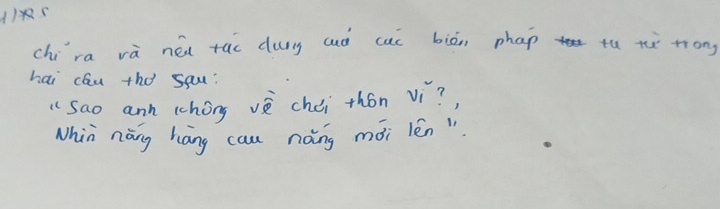 chỉ ra và nêu tác dụng cuả các biện pháp tu từ trong
hai câu thơ sau:
"Sao anh không về chơi thôn Vĩ?,
Nhìn nắng hàng cau nắng mới lên".